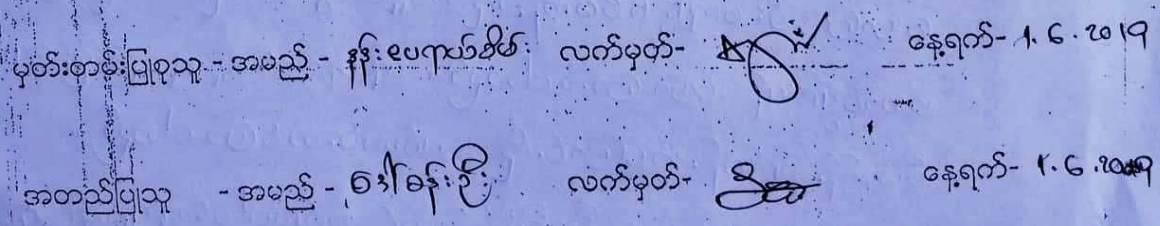 မှတ်တမ်းပြုစုသူ - အမည် - နန်းဝေရာယ်စိမ်း လက်မှတ်- နေ့ရက်- 1.6.2019
အတည်ပြုသူ - အမည် - ဒေါ်ခန်းဦး လက်မှတ်- နေ့ရက်- 1.6.2019